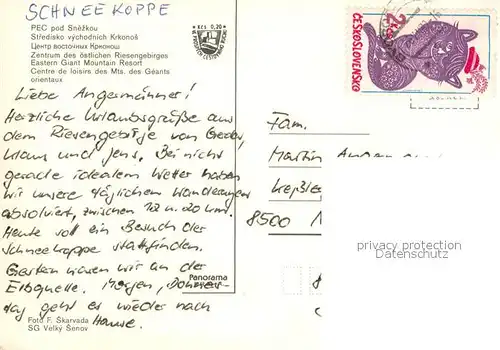 SCHNEEKOPPE
PEC pod Sněžkou
Středisko východních Krkonoš
Центр восточных Крконош
Zentrum des östlichen Riesengebirges
Eastern Giant Mountain Resort
Centre de loisirs des Mts. des Géants
orientaux
Kčs 0,20
ČESKOSLOVENSKO
Liebe Angermänner!
Herzliche Urlaubsgrüße aus
dem Riesengebirge von
Klaus und Jens. Bei nicht
gerade idealem Wetter haben
wir unsere täglichen Wanderungen
absolviert, zwischen 12 u. 20 km.
Heute soll ein Besuch der
Schneekoppe stattfinden.
Gestern waren wir an der
Elbquelle. Morgen, Donners-
tag geht es wieder nach
Hause.
Panorama
Foto F. Škarvada
SG Velký Šenov
Fam.
Martin
8500
privacy protection
for ansichtskarten-lexikon.de